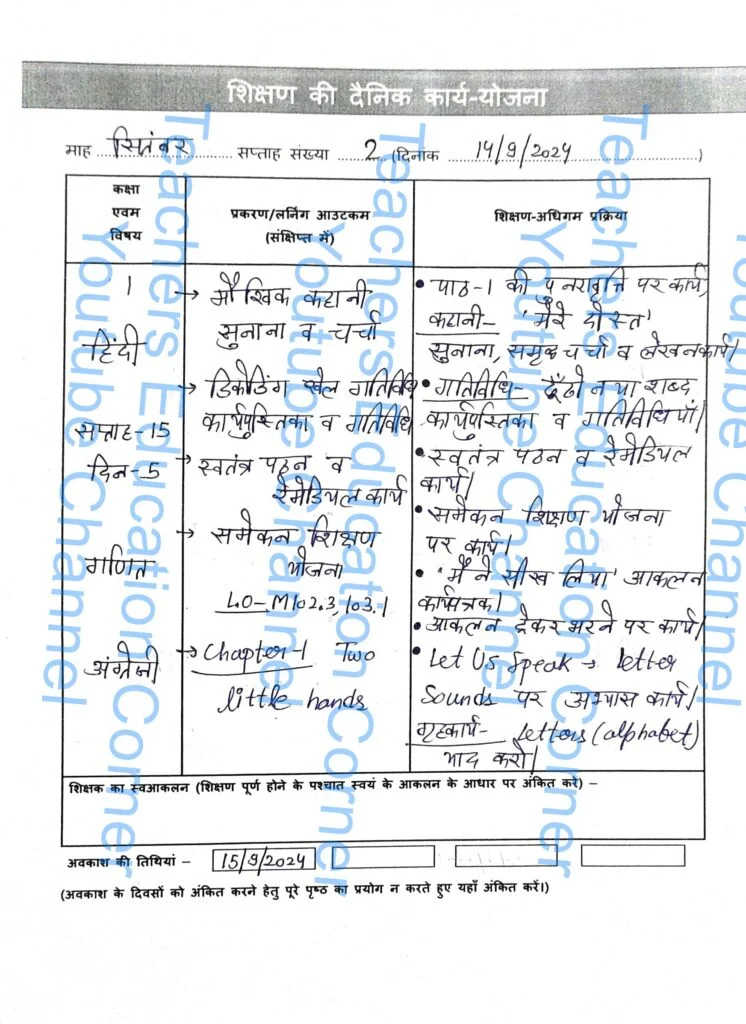 शिक्षण की दैनिक कार्य-योजना
माह सितंबर सप्ताह संख्या 2 (दिनांक 14/9/2024)
कक्षा
एवम
विषय
प्रकरण/लर्निंग आउटकम
(संक्षिप्त में)
शिक्षण-अधिगम प्रक्रिया
1
हिंदी
सप्ताह-15
दिन-5
→ मौखिक कहानी
सुनाना व चर्चा
→ डिकोडिंग खेल गतिविधि
कार्यपुस्तिका व गतिविधि
→ स्वतंत्र पठन व
रेमेडियल कार्य
• पाठ-1 की पुनरावृत्ति पर कार्य,
कहानी- 'मेरे दोस्त'
सुनाना, समूह चर्चा व लेखन कार्य।
• गतिविधि- ढूँढो नया शब्द
कार्यपुस्तिका व गतिविधियाँ।
• स्वतंत्र पठन व रेमेडियल
कार्य।
गणित
→ समेकन शिक्षण
योजना
LO-M102.3,103.1
• समेकन शिक्षण योजना
पर कार्य।
• 'मैंने सीख लिया' आकलन
कार्यपत्रक।
• आकलन ट्रेकर भरने पर कार्य।
अंग्रेजी
→ Chapter-1 Two
little hands
• Let Us Speak → letter
Sounds पर अभ्यास कार्य।
गृहकार्य- letters (alphabet)
याद करो।
शिक्षक का स्वआकलन (शिक्षण पूर्ण होने के पश्चात स्वयं के आकलन के आधार पर अंकित करे) –
अवकाश की तिथियां – 15/9/2024
(अवकाश के दिवसों को अंकित करने हेतु पूरे पृष्ठ का प्रयोग न करते हुए यहाँ अंकित करें।)
Teachers Education Corner
Youtube Channel
Teachers Education Corner
Youtube Channel
Teachers Education Corner
Youtube Channel